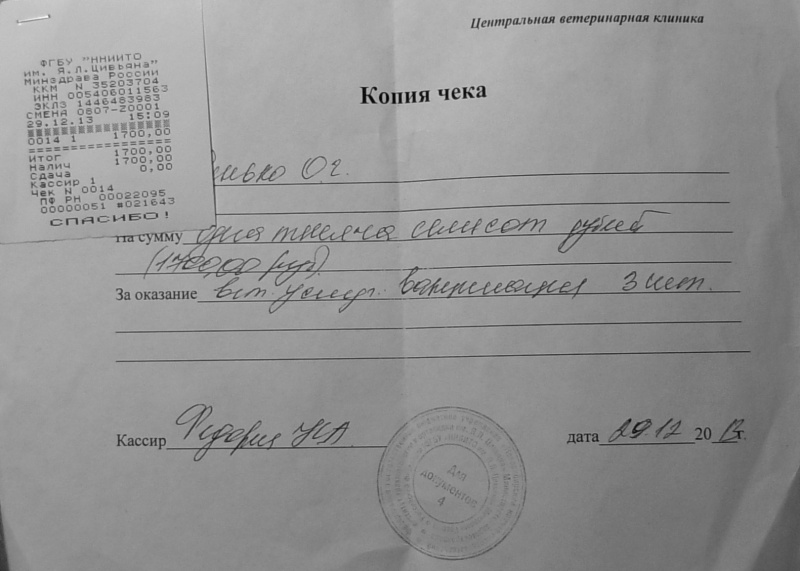 Центральная ветеринарная клиника
Копия чека
ФГБУ "ННИИТО
им. Я.Л.Цивьяна"
Минздрава России
ККМ N 35203704
ИНН 005406011563
ЭКЛЗ 1446483983
СМЕНА 0807-Z0001
29.12.13 15:09
0014 1 1700,00
ИТОГ 1700,00
НАЛИЧ 1700,00
СДАЧА 0,00
Кассир 1
Чек N 0014
ПФ РН 00022095
00000051 #021643
СПАСИБО!
О.г.
На сумму одна тысяча семьсот рублей
(1700,00 руб).
За оказание вет. услуг. вакцинация 3 шт.
Кассир
дата 29.12 2013г.
Для
документов
4